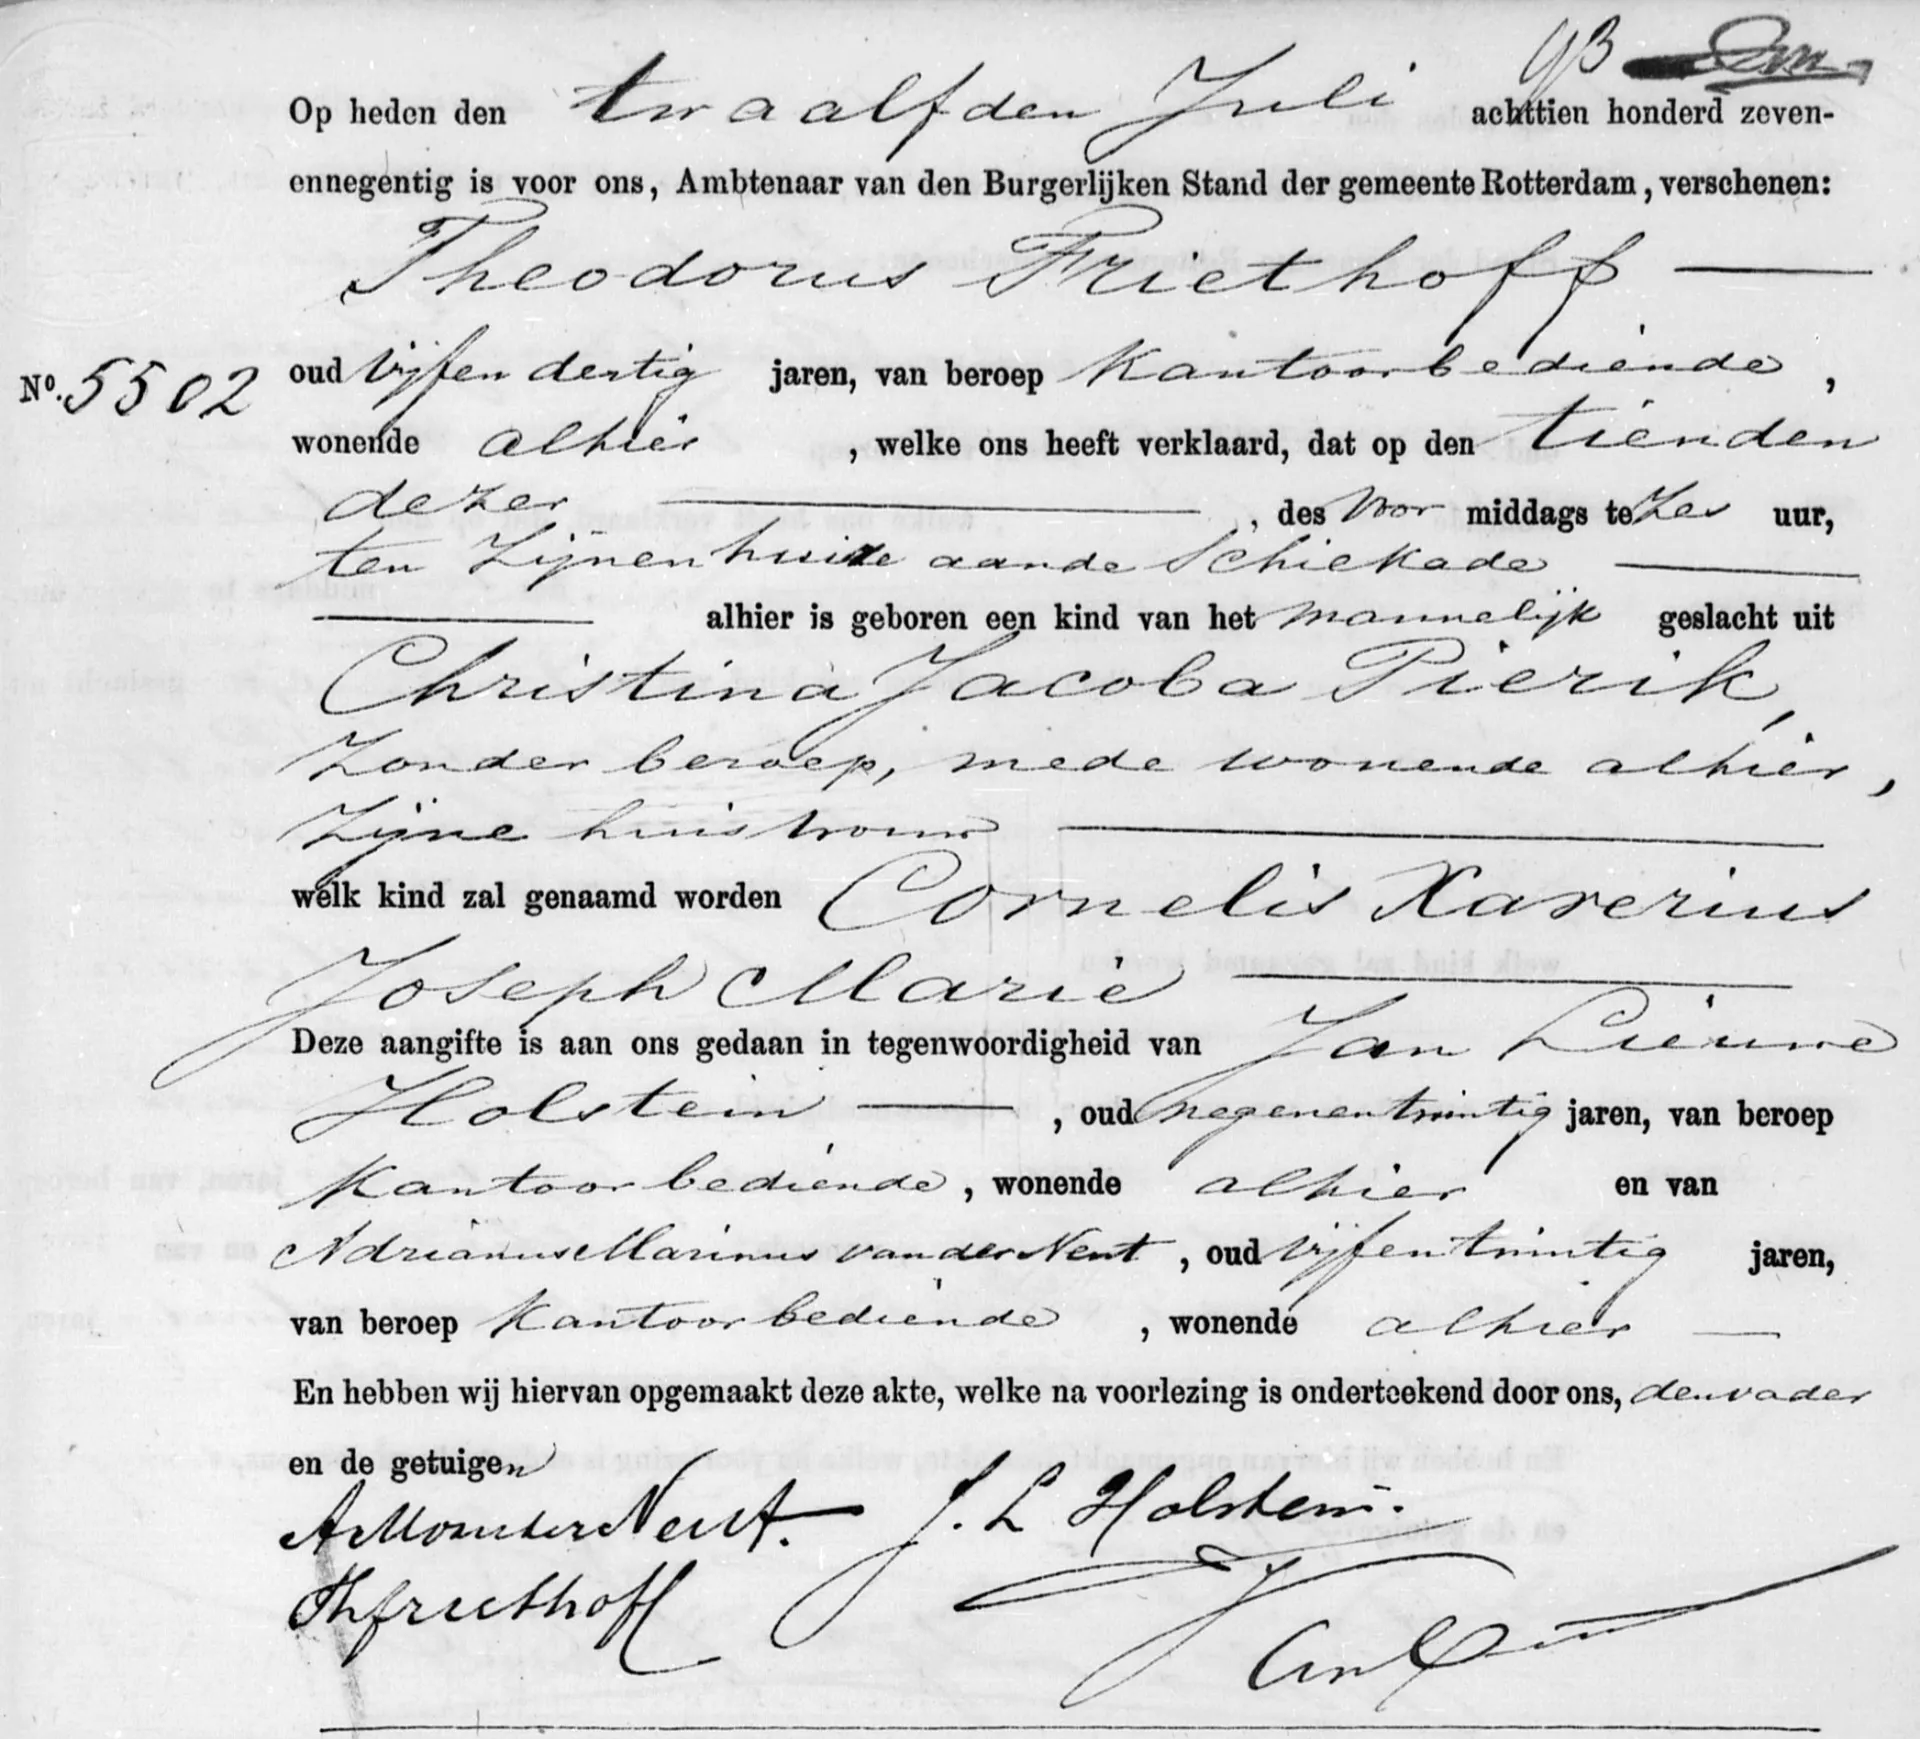 Op heden den twaalfden Juli achttien honderd zeven-
ennegentig is voor ons, Ambtenaar van den Burgerlijken Stand der gemeente Rotterdam, verschenen:
Theodorus Friethoff
No. 5502
oud vijfendertig jaren, van beroep Kantoorbediende,
wonende alhier, welke ons heeft verklaard, dat op den tienden
dezer, des voor middags te zes uur,
ten zijnen huize aan de Schiekade
alhier is geboren een kind van het mannelijk geslacht uit
Christina Jacoba Pierik,
zonder beroep, mede wonende alhier,
zijne huisvrouw
welk kind zal genaamd worden Cornelis Xaverius
Joseph Marie
Deze aangifte is aan ons gedaan in tegenwoordigheid van Jan Lieuwe
Holstein, oud negenentwintig jaren, van beroep
Kantoorbediende, wonende alhier en van
Adrianus Marinus van der Neut, oud vijfentwintig jaren,
van beroep Kantoorbediende, wonende alhier
En hebben wij hiervan opgemaakt deze akte, welke na voorlezing is onderteekend door ons, den vader
en de getuigen
AMvanderNeut. J. L Holstein.
Th friethoff